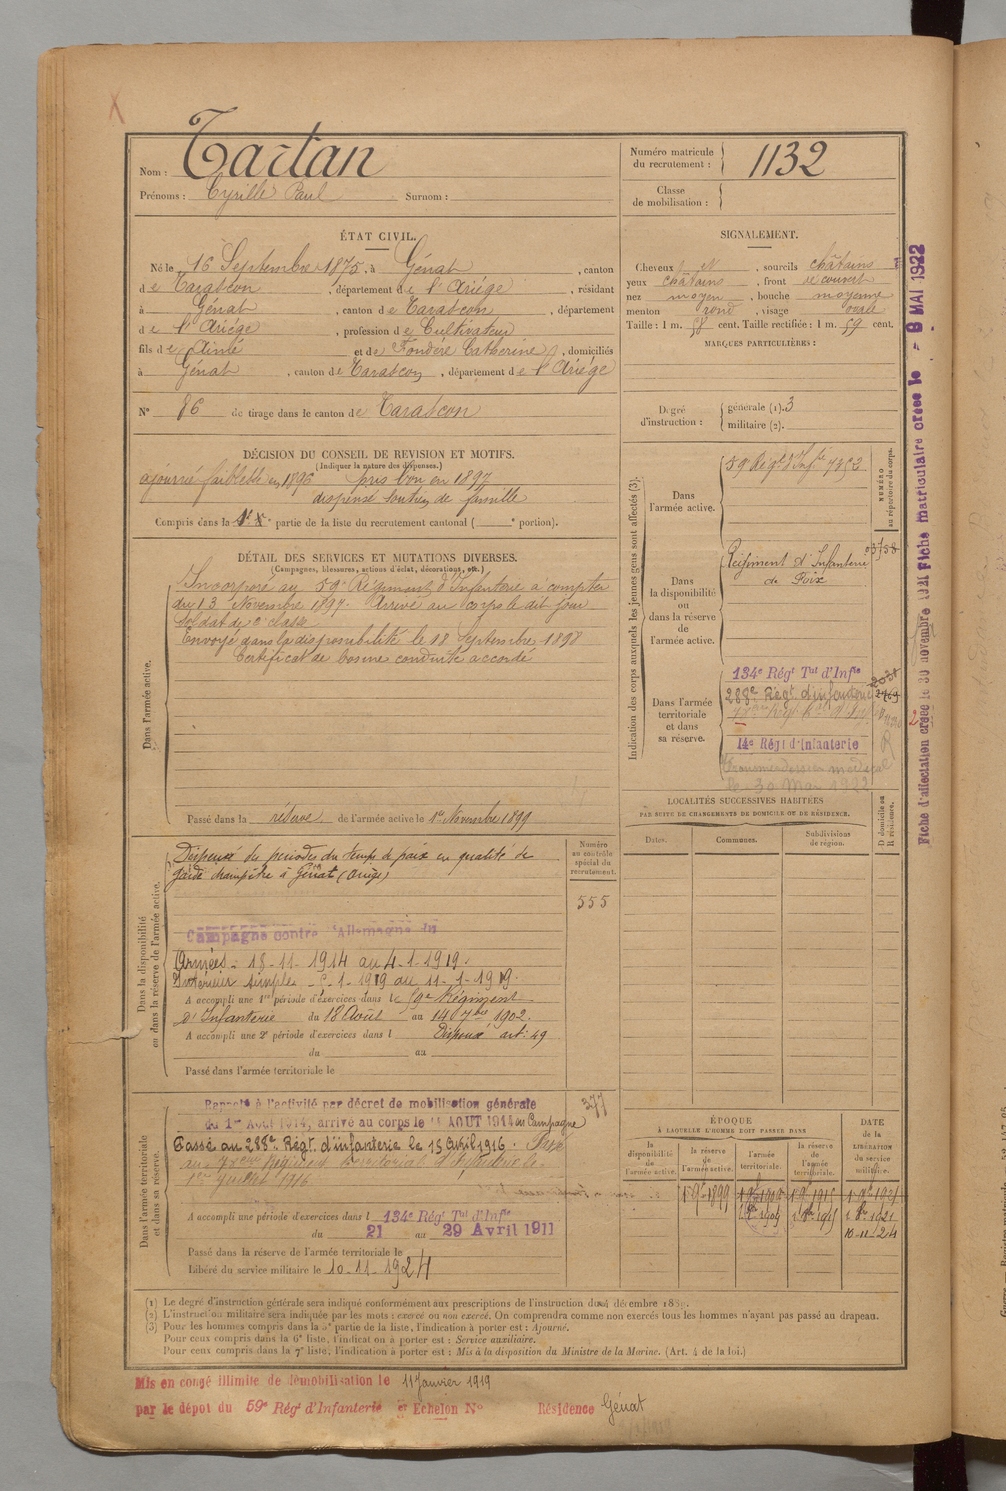 Nom : Tartan
Prénoms : Cyrille Paul Surnom :
Numéro matricule du recrutement : 1132
Classe de mobilisation :
ÉTAT CIVIL.
Né le 16 Septembre 1875, à Génat, canton
de Tarascon, département de l'Ariège, résidant
à Génat, canton de Tarascon, département
de l'Ariège, profession de Cultivateur
fils de Aimé et de Fondère Catherine, domiciliés
à Génat, canton de Tarascon, département de l'Ariège
N° 86 de tirage dans le canton de Tarascon
SIGNALEMENT.
Cheveux et, sourcils châtains
yeux châtains, front découvert
nez moyen, bouche moyenne
menton rond, visage ovale
Taille : 1 m. 58 cent. Taille rectifiée : 1 m. 59 cent.
MARQUES PARTICULIÈRES :
Degré d'instruction : générale (1). 3
militaire (2).
DÉCISION DU CONSEIL DE REVISION ET MOTIFS.
(Indiquer la nature des dispenses.)
ajourné faiblesse en 1896 pris bon en 1897
dispensé soutien de famille
Compris dans la 1e partie de la liste du recrutement cantonal ( e portion).
DÉTAIL DES SERVICES ET MUTATIONS DIVERSES.
(Campagnes, blessures, actions d'éclat, décorations, etc.)
Dans l'armée active.
Incorporé au 59e Régiment d'Infanterie à compter
du 13 Novembre 1897. Arrivé au corps le dit jour
soldat de 2e classe
Envoyé dans la disponibilité le 18 Septembre 1898
Certificat de bonne conduite accordé
Passé dans la réserve de l'armée active le 1er Novembre 1899
Indication des corps auxquels les jeunes gens sont affectés (3).
NUMÉRO au répertoire du corps.
Dans l'armée active.
59e Régt d'Infie 7353
Dans la disponibilité ou dans la réserve de l'armée active.
Régiment d'Infanterie
de Foix
Dans l'armée territoriale et dans sa réserve.
134e Régt Tal d'Infie
288e Régt d'infanterie
14e Régt d'Infanterie
le 30 Mai 1922
Fiche d'affectation créée le 30 novembre 1921 Fiche matriculaire créée le - 9 MAI 1922
LOCALITÉS SUCCESSIVES HABITÉES
PAR SUITE DE CHANGEMENTS DE DOMICILE OU DE RÉSIDENCE.
D domicile ou R résidence.
Dates. Communes. Subdivisions de région.
Dans la disponibilité ou dans la réserve de l'armée active.
Numéro au contrôle spécial du recrutement.
555
Dispensé des périodes du temps de paix en qualité de
garde champêtre à Génat (Ariège)
Campagne contre l'Allemagne du
Armées - 18-11-1914 au 4-1-1919.
Intérieur simple - 5-1-1919 au 11-1-1919.
A accompli une 1re période d'exercices dans le 59e Régiment
d'Infanterie du 18 Août au 14 7bre 1902.
A accompli une 2e période d'exercices dans l Dispensé art: 49
du au
Passé dans l'armée territoriale le
Dans l'armée territoriale et dans sa réserve.
377
Rappelé à l'activité par décret de mobilisation générale
du 1er Août 1914, arrivé au corps le AOUT 1914 en Campagne
Passé au 288e Régt. d'infanterie le 15 Avril 1916. Passé
1er Juillet 1916
A accompli une période d'exercices dans l 134e Régt Tal d'Infie
du 21 au 29 Avril 1911
Passé dans la réserve de l'armée territoriale le
Libéré du service militaire le 10-11-1924
ÉPOQUE
À LAQUELLE L'HOMME DOIT PASSER DANS
la disponibilité de l'armée active. la réserve de l'armée active. l'armée territoriale. la réserve de l'armée territoriale.
DATE de la LIBÉRATION du service militaire.
10-11-24
(1) Le degré d'instruction générale sera indiqué conformément aux prescriptions de l'instruction du 4 décembre 1889.
(2) L'instruction militaire sera indiquée par les mots : exercé ou non exercé. On comprendra comme non exercés tous les hommes n'ayant pas passé au drapeau.
(3) Pour les hommes compris dans la 5e partie de la liste, l'indication à porter est : Ajourné.
Pour ceux compris dans la 6e liste, l'indication à porter est : Service auxiliaire.
Pour ceux compris dans la 7e liste, l'indication à porter est : Mis à la disposition du Ministre de la Marine. (Art. 4 de la loi.)
Mis en congé illimité de démobilisation le 11 Janvier 1919
par le dépôt du 59e Régt d'Infanterie Echelon N° Résidence Génat